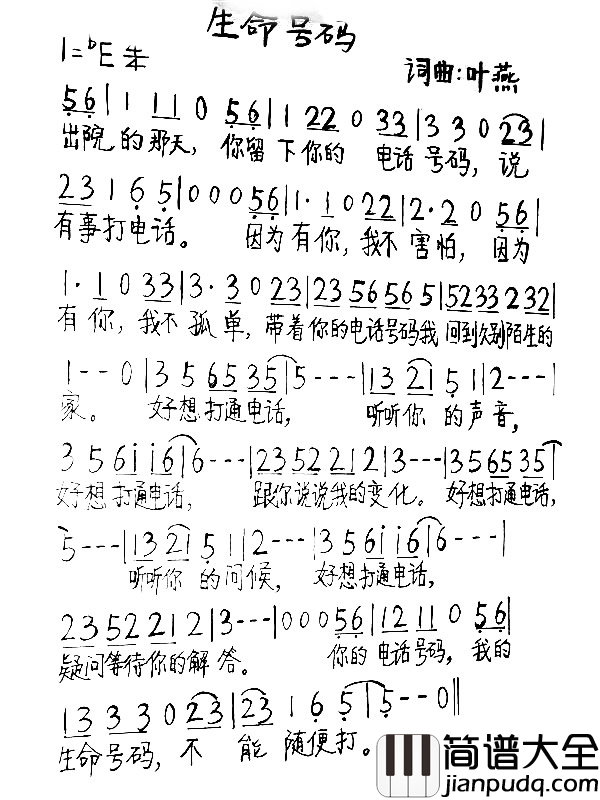 生命号码
1=♭E 朱
词曲:叶燕
5̣6̣|1 11 0 5̣6̣|1 22 0 33|3 3 0 23|
出院的那天, 你留下你的 电话号码, 说
23 1 6̣ 5̣|0 0 0 5̣6̣|1· 1 0 22|2· 2 0 5̣6̣|
有事打电话。 因为有你,我不害怕, 因为
1· 1 0 33|3· 3 0 23|23 56 56 5|52 33 2 32|
有你,我不孤单,带着你的电话号码我回到久别陌生的
1--0|3 5 65 35|5---|13 21 5̣ 1|2---|
家。 好想打通电话, 听听你的声音,
3 5 6i i6|6---|23 52 21 2|3---|3 5 65 35|
好想打通电话, 跟你说说我的变化。好想打通电话,
5---|13 21 5̣ 1|2---|3 5 6i i6|6---|
听听你的问候, 好想打通电话,
23 52 21 2|3---|0 0 0 5̣6̣|12 11 0 5̣6̣|
疑问等待你的解答。 你的电话号码,我的
13 3 3 0 23|23 1 6̣ 5̣|5̣--0‖
生命号码,不能随便打。
简谱大全
jianpudq.com